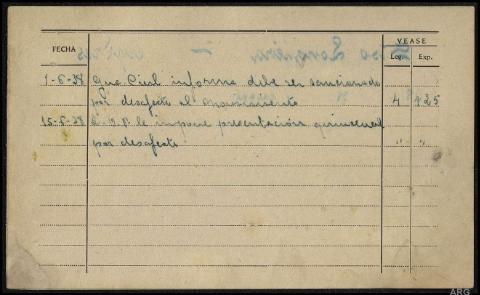 VEASE
FECHA
Leg. Exp.
1-6-38 Gua Civil informa debe ser sancionado
por desafecto al movimiento 4 425
15-6-38 le impone presentación quincenal
por desafecto " "
ARG